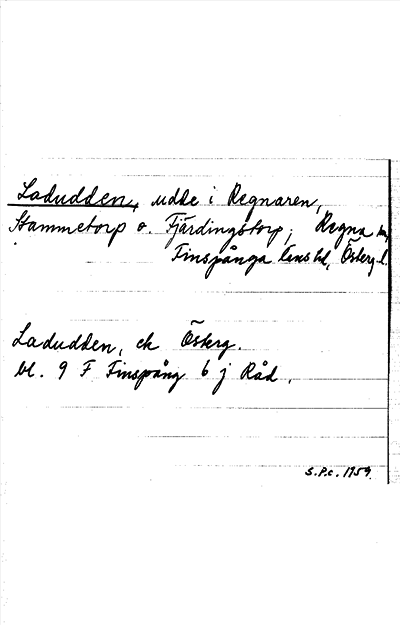 Ladudden, udde i Regnaren,
Stammetorp o. Fjärdingstorp; Regna sn,
Finspånga läns hd, Österg. l.
Ladudden, ek Österg.
bl. 9 F Finspång 6 j Råd.
S.P.c. 1959.